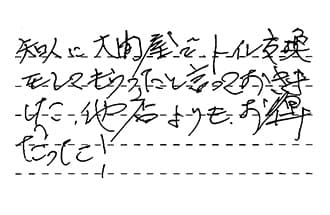 知人に大的屋でトイレ交換
をしてもらうたと言っておき
した。他店よりも、お得
だった!